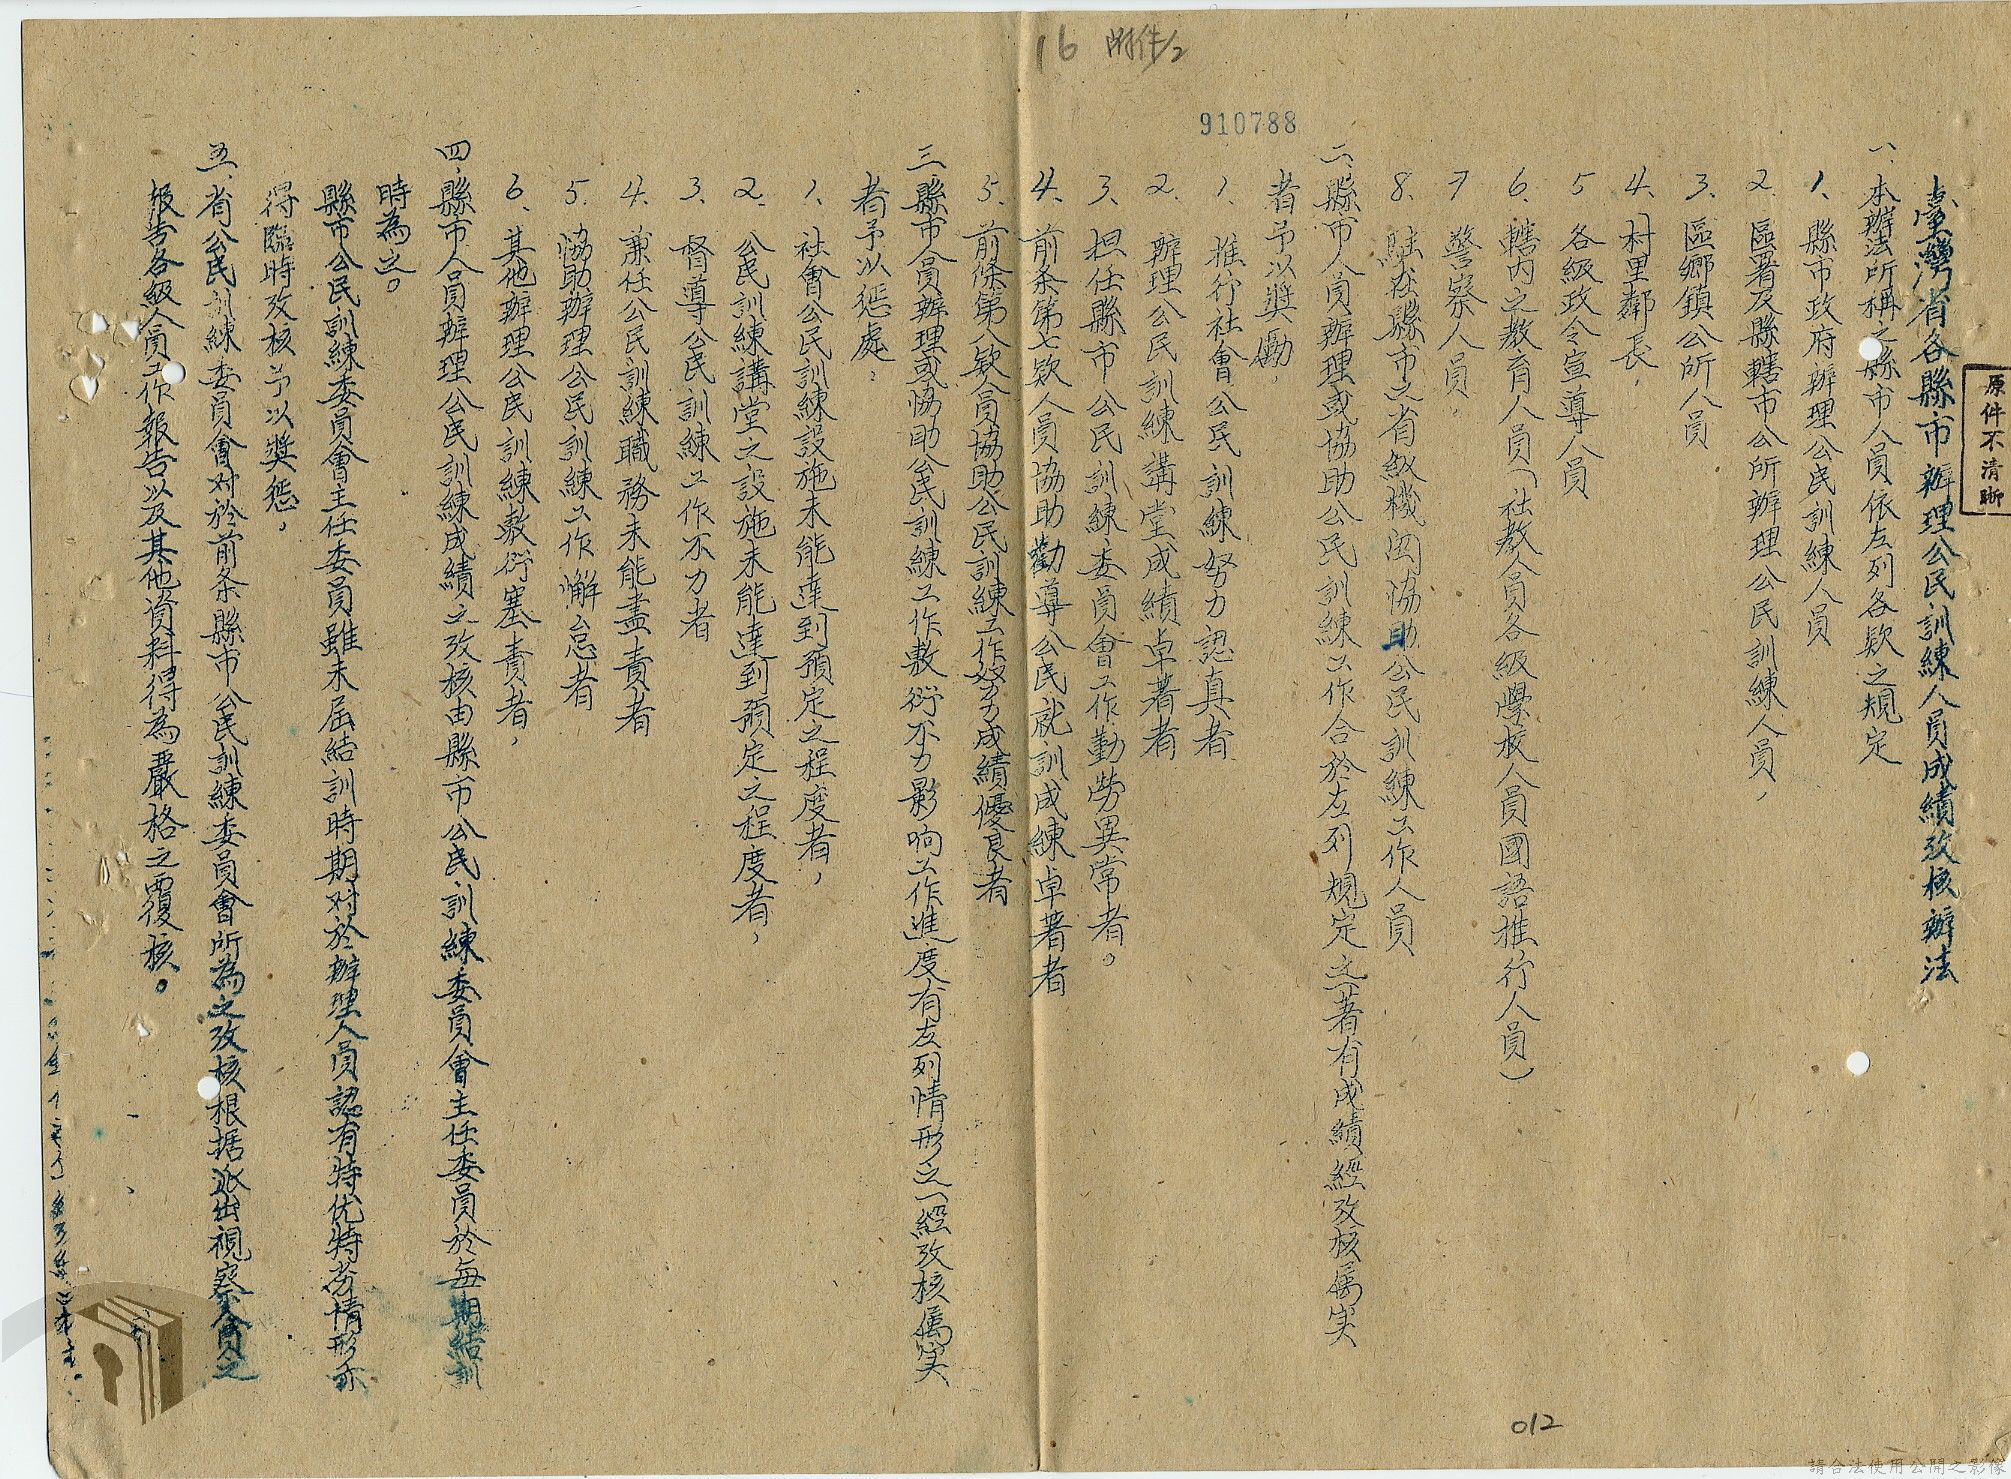 16 附件2
910788
原件不清晰
臺灣省各縣市辦理公民訓練人員成績攷核辦法
一、本辦法所稱之縣市人員依左列各欵之規定
1、縣市政府辦理公民訓練人員
2、區署及縣轄市公所辦理公民訓練人員，
3、區鄉鎮公所人員
4、村里鄰長，
5 各級政令宣導人員
6、轄內之教育人員（社教人員各級學校人員國語推行人員）
7 警察人員，
8、駐在縣市之省級機関協助公民訓練工作人員
二、縣市人員辦理或協助公民訓練工作合於左列規定之一著有成績經攷核属实
者予以獎勵，
1、推行社會公民訓練努力認真者
2、辦理公民訓練講堂成績卓著者
3、担任縣市公民訓練委員會工作勤勞異常者。
4、前条第七欵人員協助勸導公民就訓成練卓著者
5、前條第八欵人員協助公民訓練工作努力成績優良者
三、縣市人員辦理或協助公民訓練工作敷衍不力影响工作進度有左列情形之一經攷核属实
者予以惩處，
1、社會公民訓練設施未能達到預定之程度者，
2、公民訓練講堂之設施未能達到預定之程度者，
3、督導公民訓練工作不力者
4、兼任公民訓練職務未能盡責者
5、協助辦理公民訓練工作懈怠者
6、其他辦理公民訓練敷衍塞責者，
四、縣市人員辦理公民訓練成績之攷核由縣市公民訓練委員會主任委員於每期結訓
時為之。
縣市公民訓練委員會主任委員雖未屆結訓時期对於辦理人員認有特优特劣情形亦
得臨時攷核予以獎惩，
五、省公民訓練委員會对於前条縣市公民訓練委員會所為之攷核根据派出視察人員之
報告各級人員工作報告以及其他資料得為嚴格之覆核。
012
請合法使用公開之影像